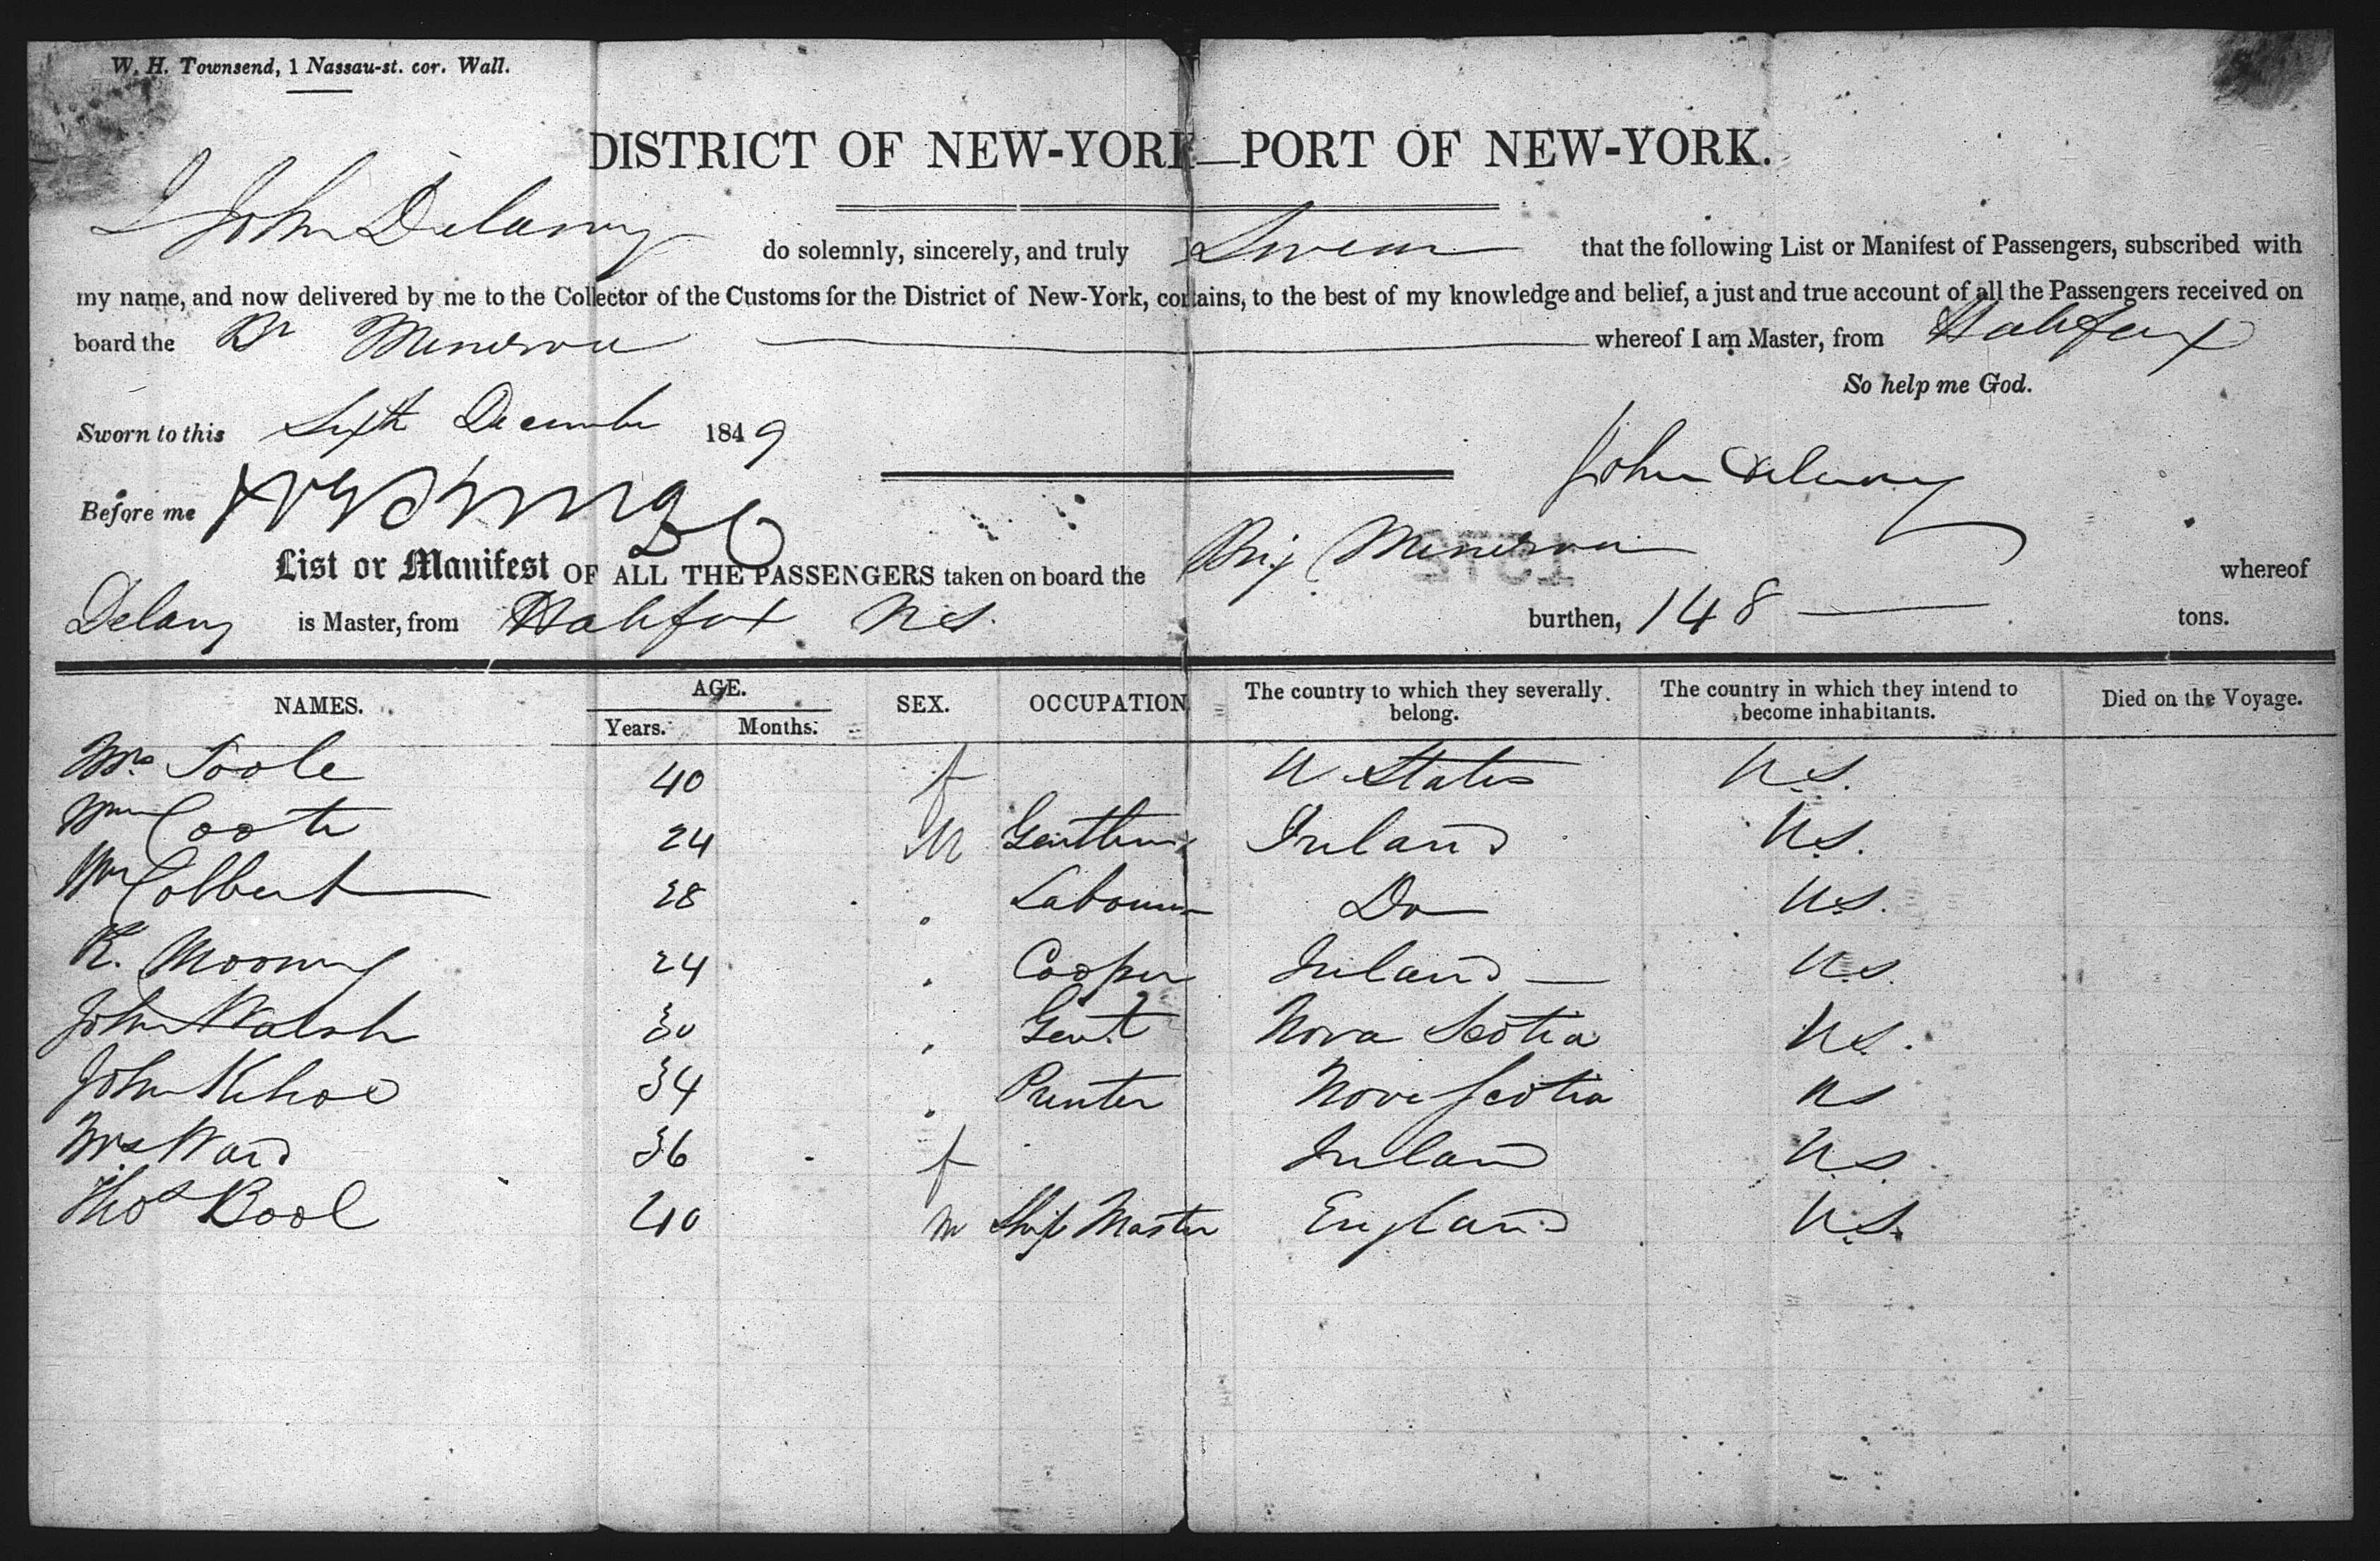 W. H. Townsend, 1 Nassau-st. cor. Wall.
DISTRICT OF NEW-YORK—PORT OF NEW-YORK.
I John Delaney do solemnly, sincerely, and truly Swear that the following List or Manifest of Passengers, subscribed with
my name, and now delivered by me to the Collector of the Customs for the District of New-York, contains, to the best of my knowledge and belief, a just and true account of all the Passengers received on
board the Br Minerva whereof I am Master, from Halifax
So help me God.
Sworn to this Sixth December 1849
John Delaney
Before me
List or Manifest OF ALL THE PASSENGERS taken on board the Brig Minerva whereof
Delany is Master, from Halifax N.S. burthen, 148 tons.
NAMES. AGE. SEX. OCCUPATION The country to which they severally belong. The country in which they intend to become inhabitants. Died on the Voyage.
Years. Months.
Mrs Toole 40 f U. States U.S.
Wm Coote 24 M Gentleman Ireland U.S.
Wm Colbert 28 Labourer Do U.S.
K. Mooney 24 Cooper Ireland U.S.
John Walsh 30 Gent Nova Scotia U.S.
John Kehoe 34 Printer Nova Scotia US
Mrs Ward 36 f Ireland U.S.
Thos Bool 40 M Ship Master England U.S.